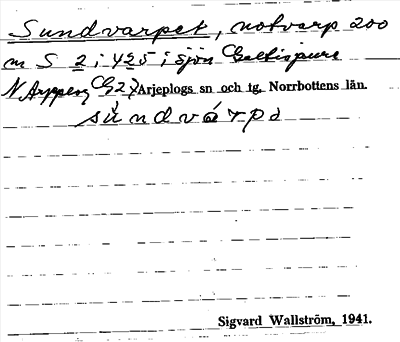 Sundvarpet, notvarp 200
m S 2 i 425 i sjön Galtisjaure
N Arjeplog Arjeplogs sn och tg, Norrbottens län.
sùndvárpə
Sigvard Wallström, 1941.